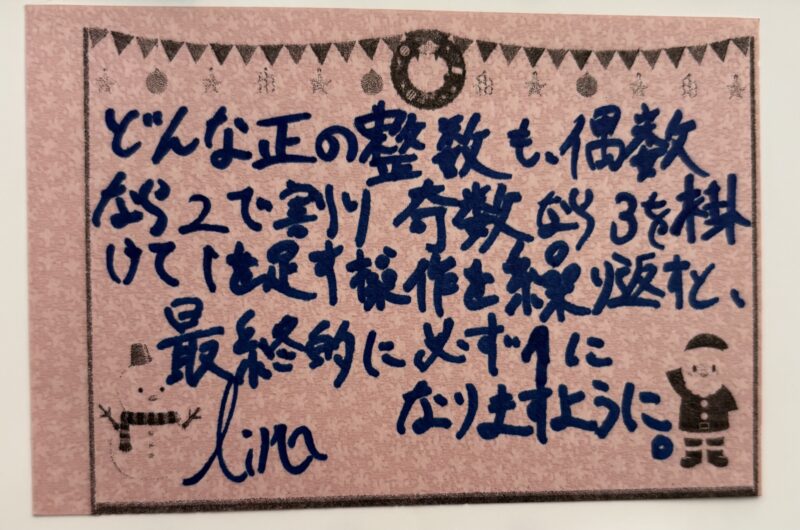 どんな正の整数も、偶数
なら2で割り 奇数なら3を掛
けて1を足す操作を繰り返すと、
最終的に必ず1に
なりますように。
lina